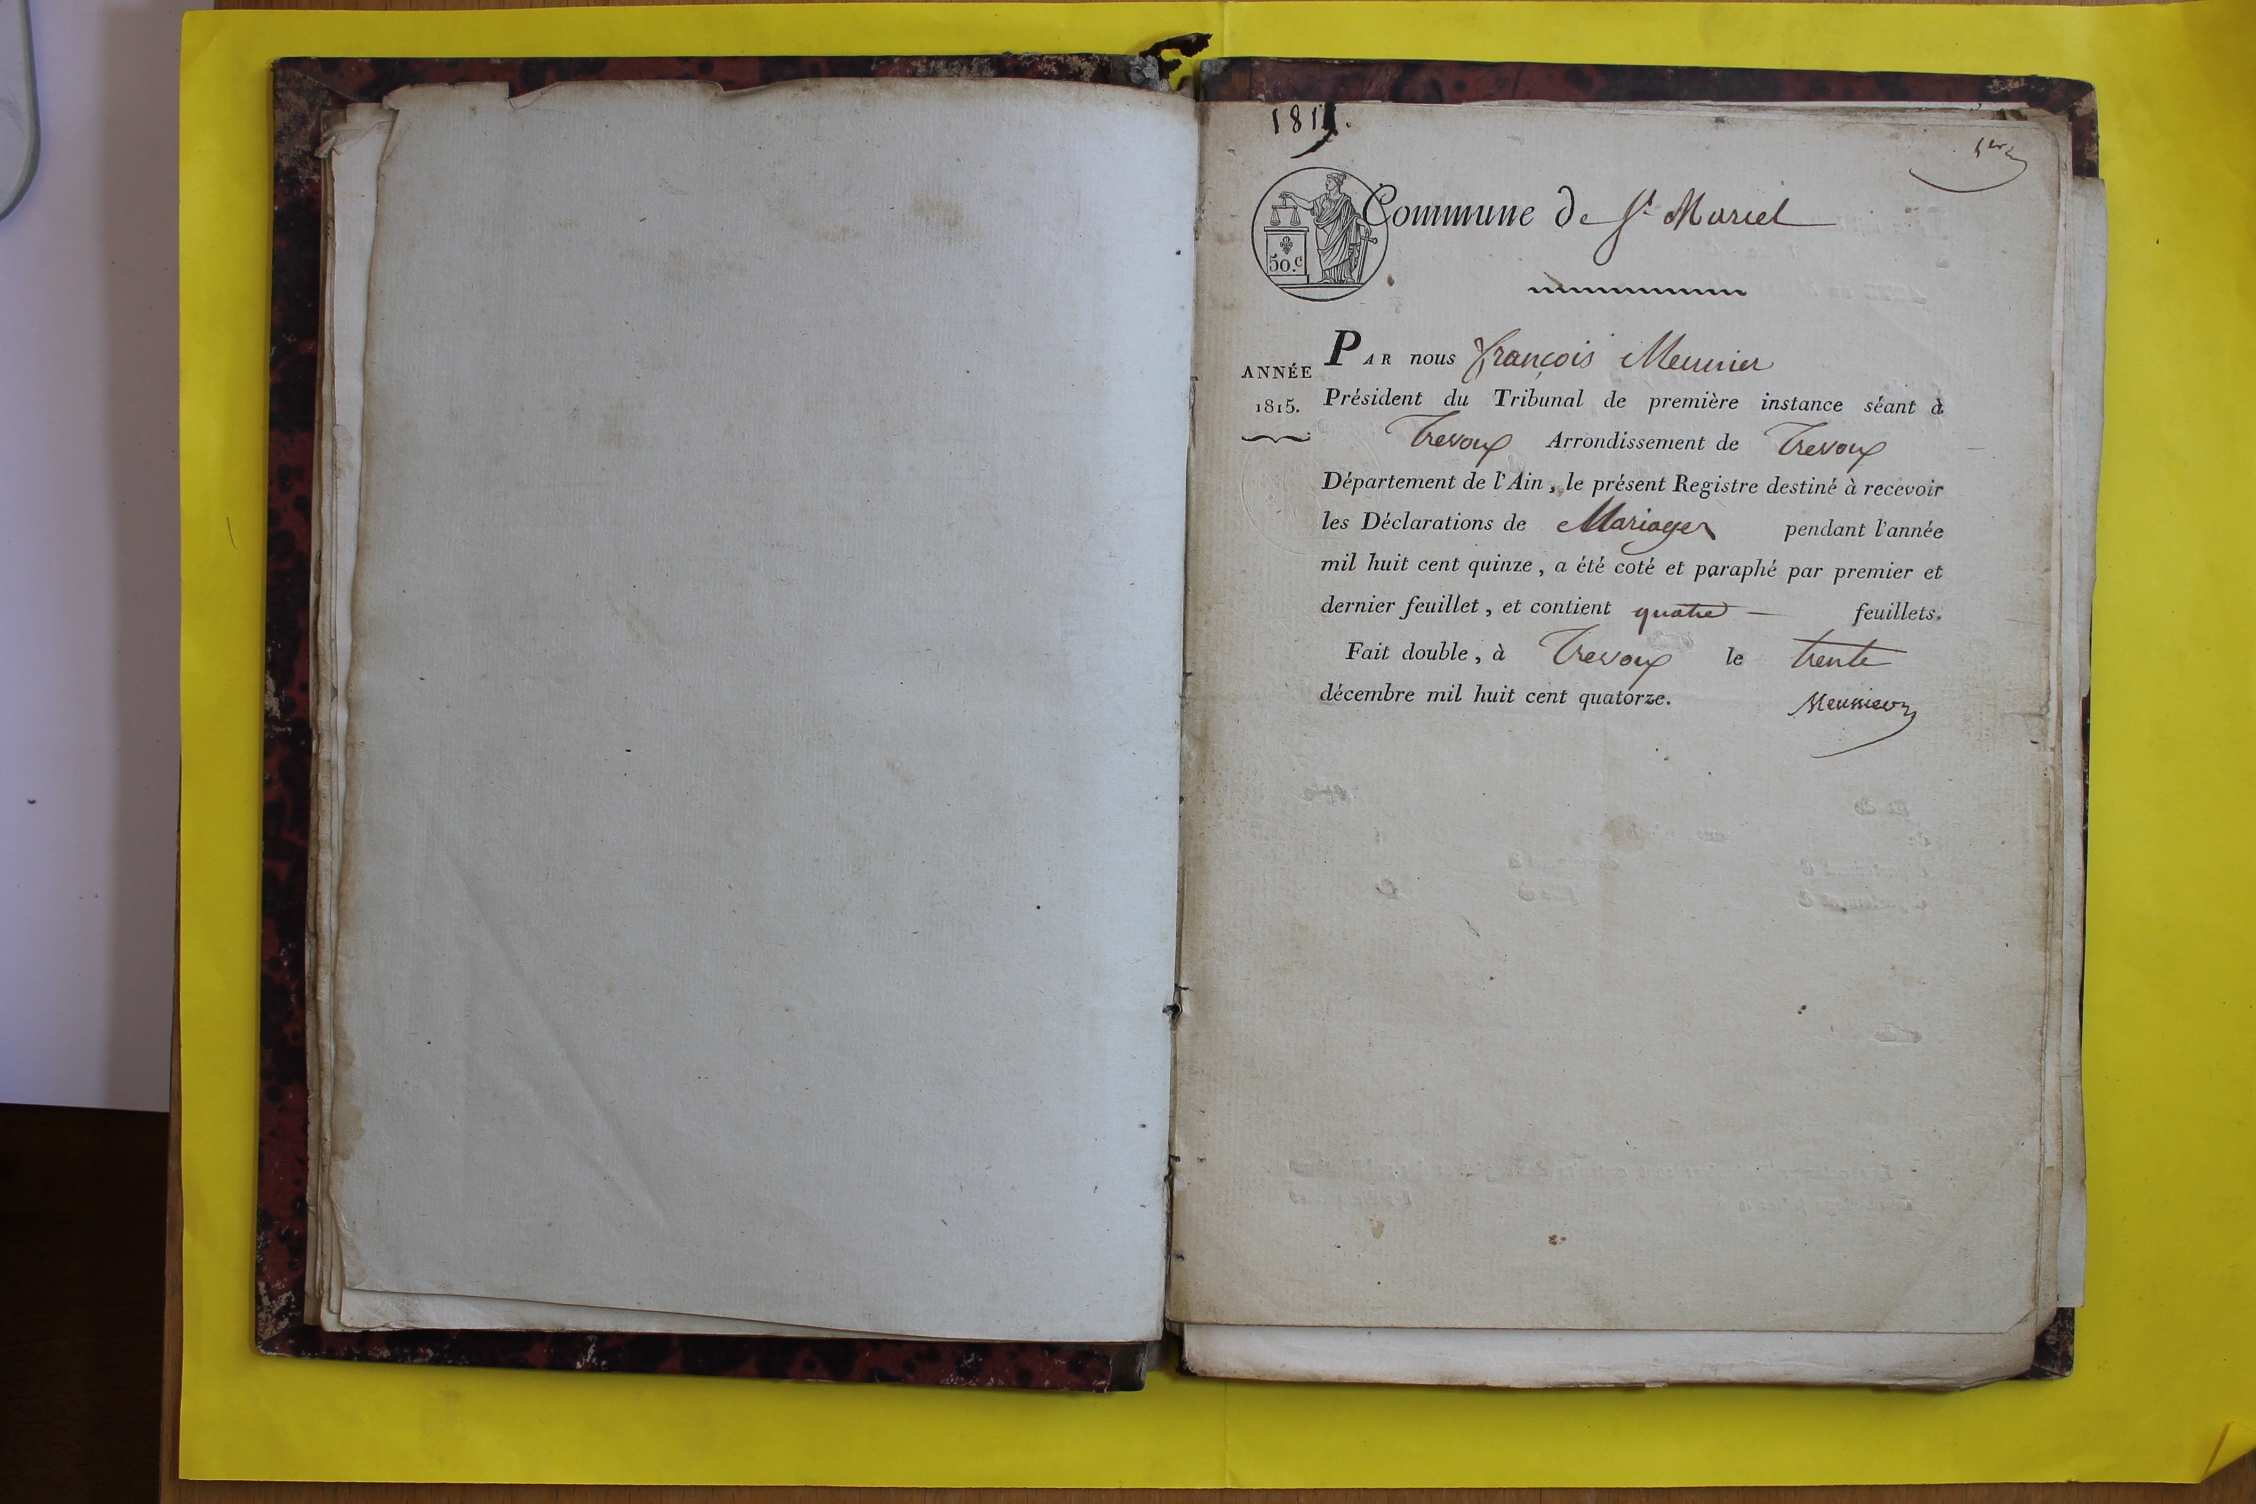 1815.
1er
Commune de St Marcel
50.c
PAR nous François Meunier
ANNÉE
1815.
Président du Tribunal de première instance séant à
Trevoux Arrondissement de Trevoux
Département de l'Ain, le présent Registre destiné à recevoir
les Déclarations de Mariages pendant l'année
mil huit cent quinze, a été coté et paraphé par premier et
dernier feuillet, et contient quatre feuillets.
Fait double, à Trevoux le trente
décembre mil huit cent quatorze.
Meunier